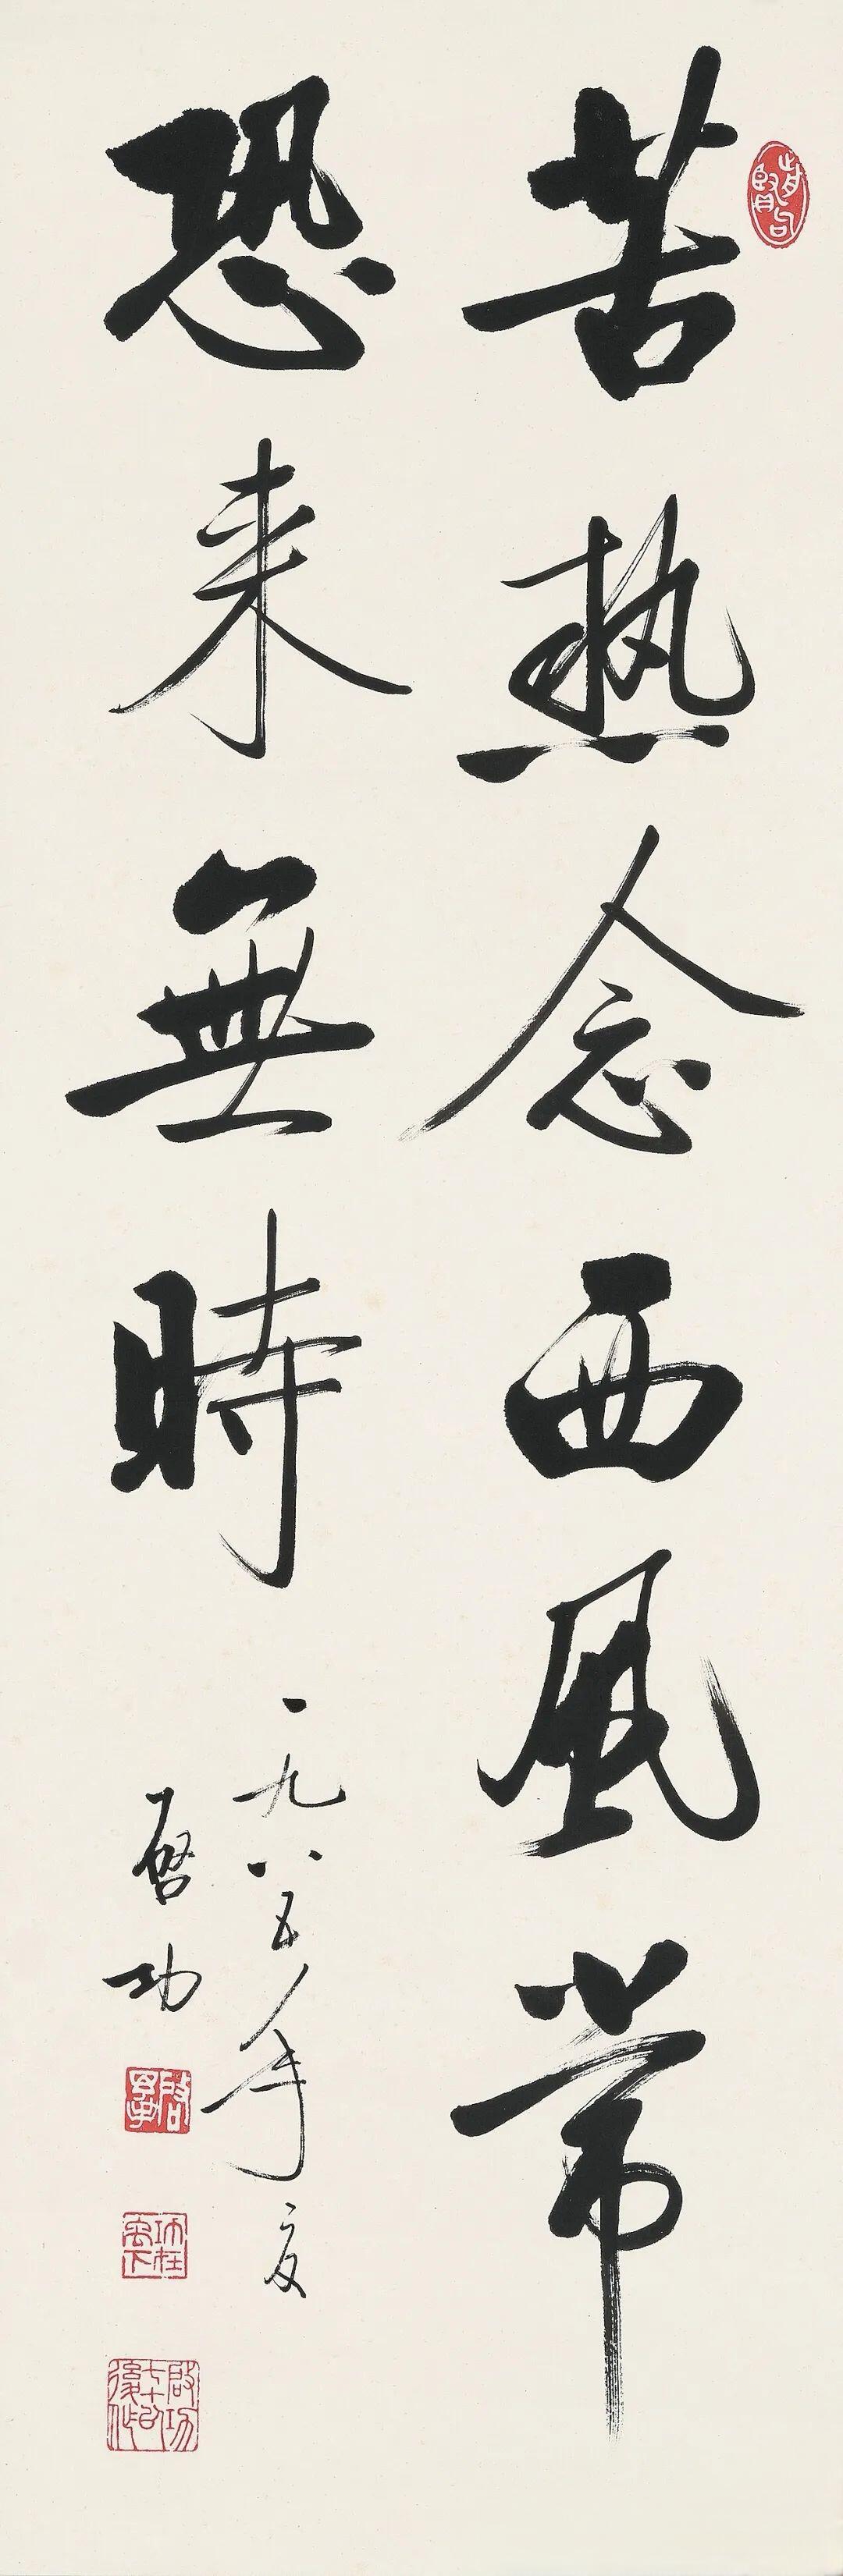 苦热念西風常
恐来無時
一九八五年夏
啓功